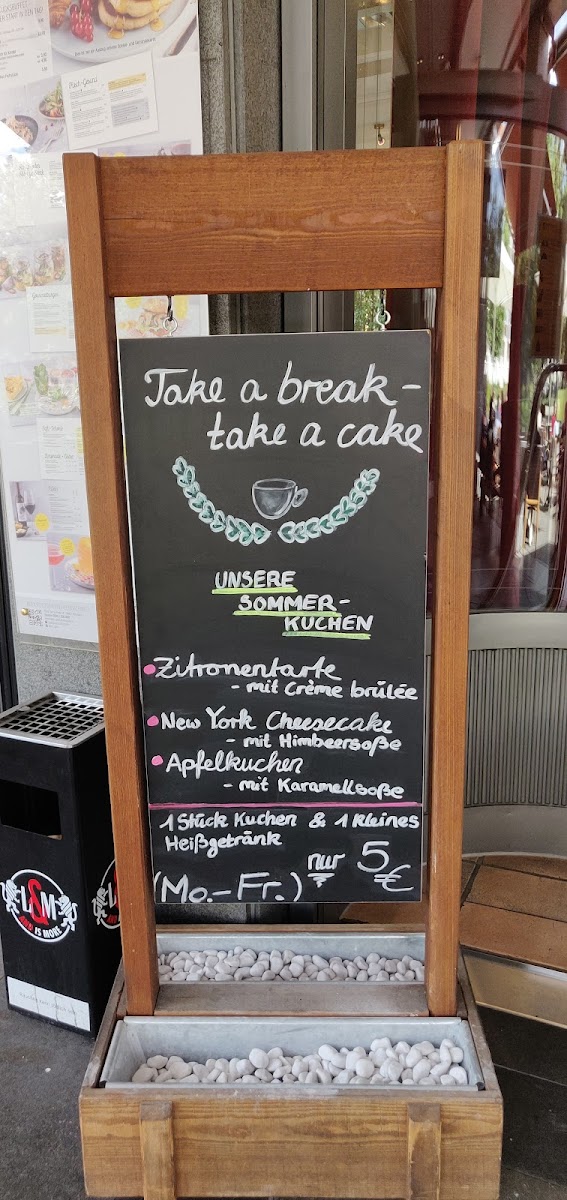 Take a break -
take a cake
UNSERE
SOMMER-
KUCHEN
Zitronentarte
- mit Crème brûlée
New York Cheesecake
- mit Himbeersoße
Apfelkuchen
- mit Karamellsoße
1 Stück Kuchen & 1 kleines
Heißgetränk
nur 5€
(Mo.-Fr.)
L&M